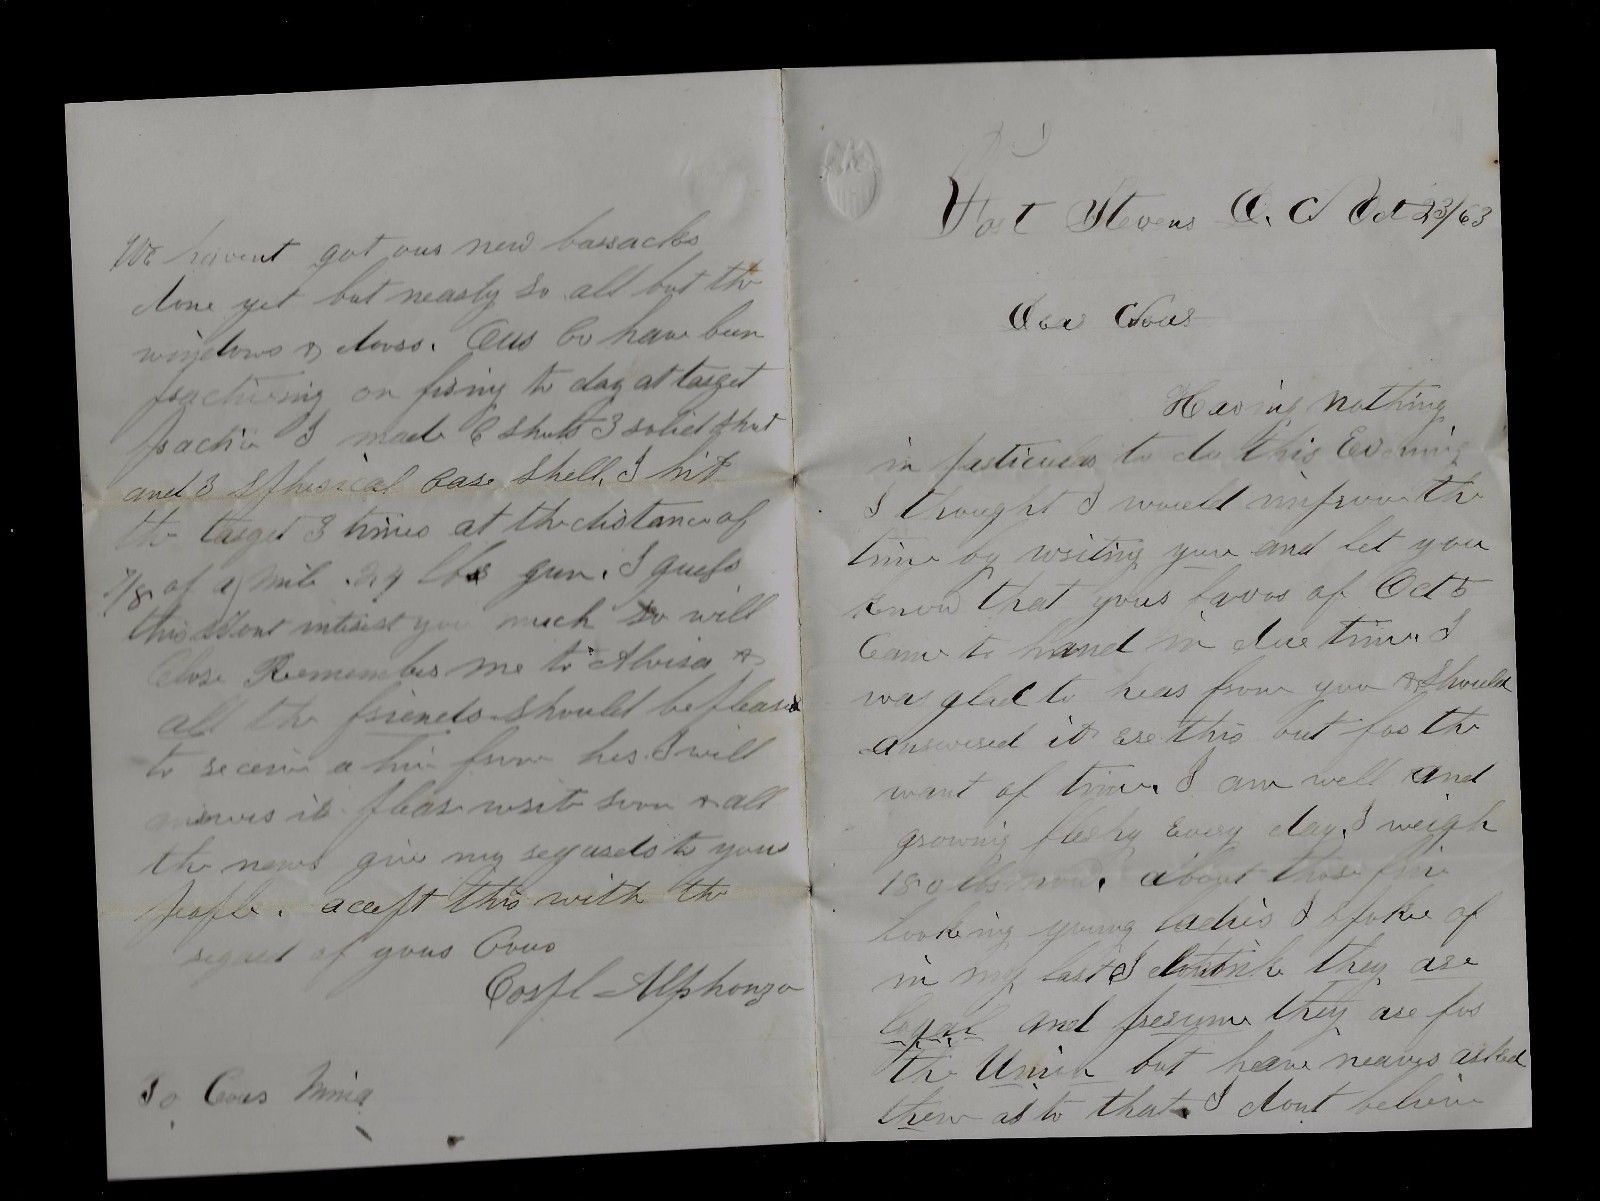 Fort Stevens D. C. Oct 23/63
Dear Cous
Having nothing
in particular to do this Evening
I thought I would improve the
time by writing you and let you
know that your favor of Oct 5
Came to hand in due time. I
was glad to hear from you & should
answered it ere this but for the
want of time. I am well and
growing fleshy Every day. I weigh
180 lbs now. about those fine
looking young ladies I spoke of
in my last I think they are
loyal and presume they are for
the Union but have never asked
them as to that. I dont believe
We havent got our new barracks
done yet but nearly so all but the
windows & doors. Our Co have been
practising on firing to day at target
practice I made 6 shots 3 solid shot
and 3 spherical Case Shell, I hit
the target 3 times at the distance of
7/8 of a mile. 24 lbs gun. I guess
this dont interest you much so will
Close Remember me to Alvira &
all the friends should be pleased
to receive a line from her. I will
answer it please write soon & all
the news give my regards to your
people. accept this with the
regard of your Cous
Corpl Alphonzo
To Cous Mina